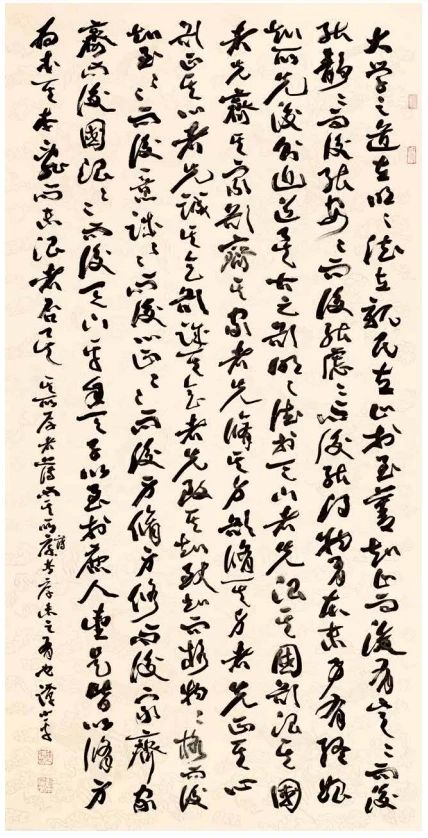 大学之道在明〻德在親民在止於至善知止而後有定〻而後
能静〻而後能安〻而後能慮〻而後能得物有本末事有终始
知所先後则近道矣古之欲明〻德於天下者先治其國欲治其國
者先齊其家欲齊其家者先脩其身欲脩其身者先正其心
欲正其心者先誠其意欲誠其意者先致其知致知而格物〻格而後
知至〻而後意誠〻而後心正〻而後身脩身修而後家齊家
齊而後國治〻而後天下平自天子以至於庶人壹是皆以脩身
為本其本亂而末治者否矣其所厚者薄而其所薄者厚未之有也